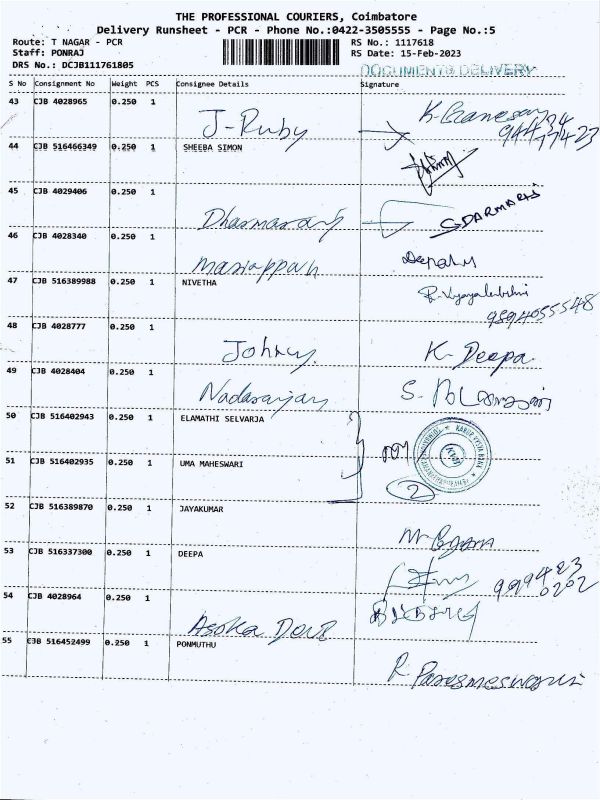 THE PROFESSIONAL COURIERS, Coimbatore
Delivery Runsheet - PCR - Phone No.:0422-3505555 - Page No.:5
Route: T NAGAR - PCR
RS No.: 1117618
Staff: PONRAJ
RS Date: 15-Feb-2023
DRS No.: DCJB111761805
DOCUMENTS DELIVERY
S No Consignment No Weight PCS Consignee Details Signature
43 CJB 4028965 0.250 1
J-Ruby K. Ganesan
44 CJB 516466349 0.250 1 SHEEBA SIMON
45 CJB 4029406 0.250 1
Dharmaraj S DARMARAJ
46 CJB 4028340 0.250 1
Mariappan Deepak
47 CJB 516389988 0.250 1 NIVETHA
9894055548
48 CJB 4028777 0.250 1
Johny. K. Deepa
49 CJB 4028404 0.250 1
Nadarajan
50 CJB 516402943 0.250 1 ELAMATHI SELVARJA
51 CJB 516402935 0.250 1 UMA MAHESWARI
KARUR VYSYA BANK
2
52 CJB 516389870 0.250 1 JAYAKUMAR
53 CJB 516337300 0.250 1 DEEPA
999423
0202
54 CJB 4028964 0.250 1
Asoka
55 CJB 516452499 0.250 1 PONMUTHU
R. Parameswari